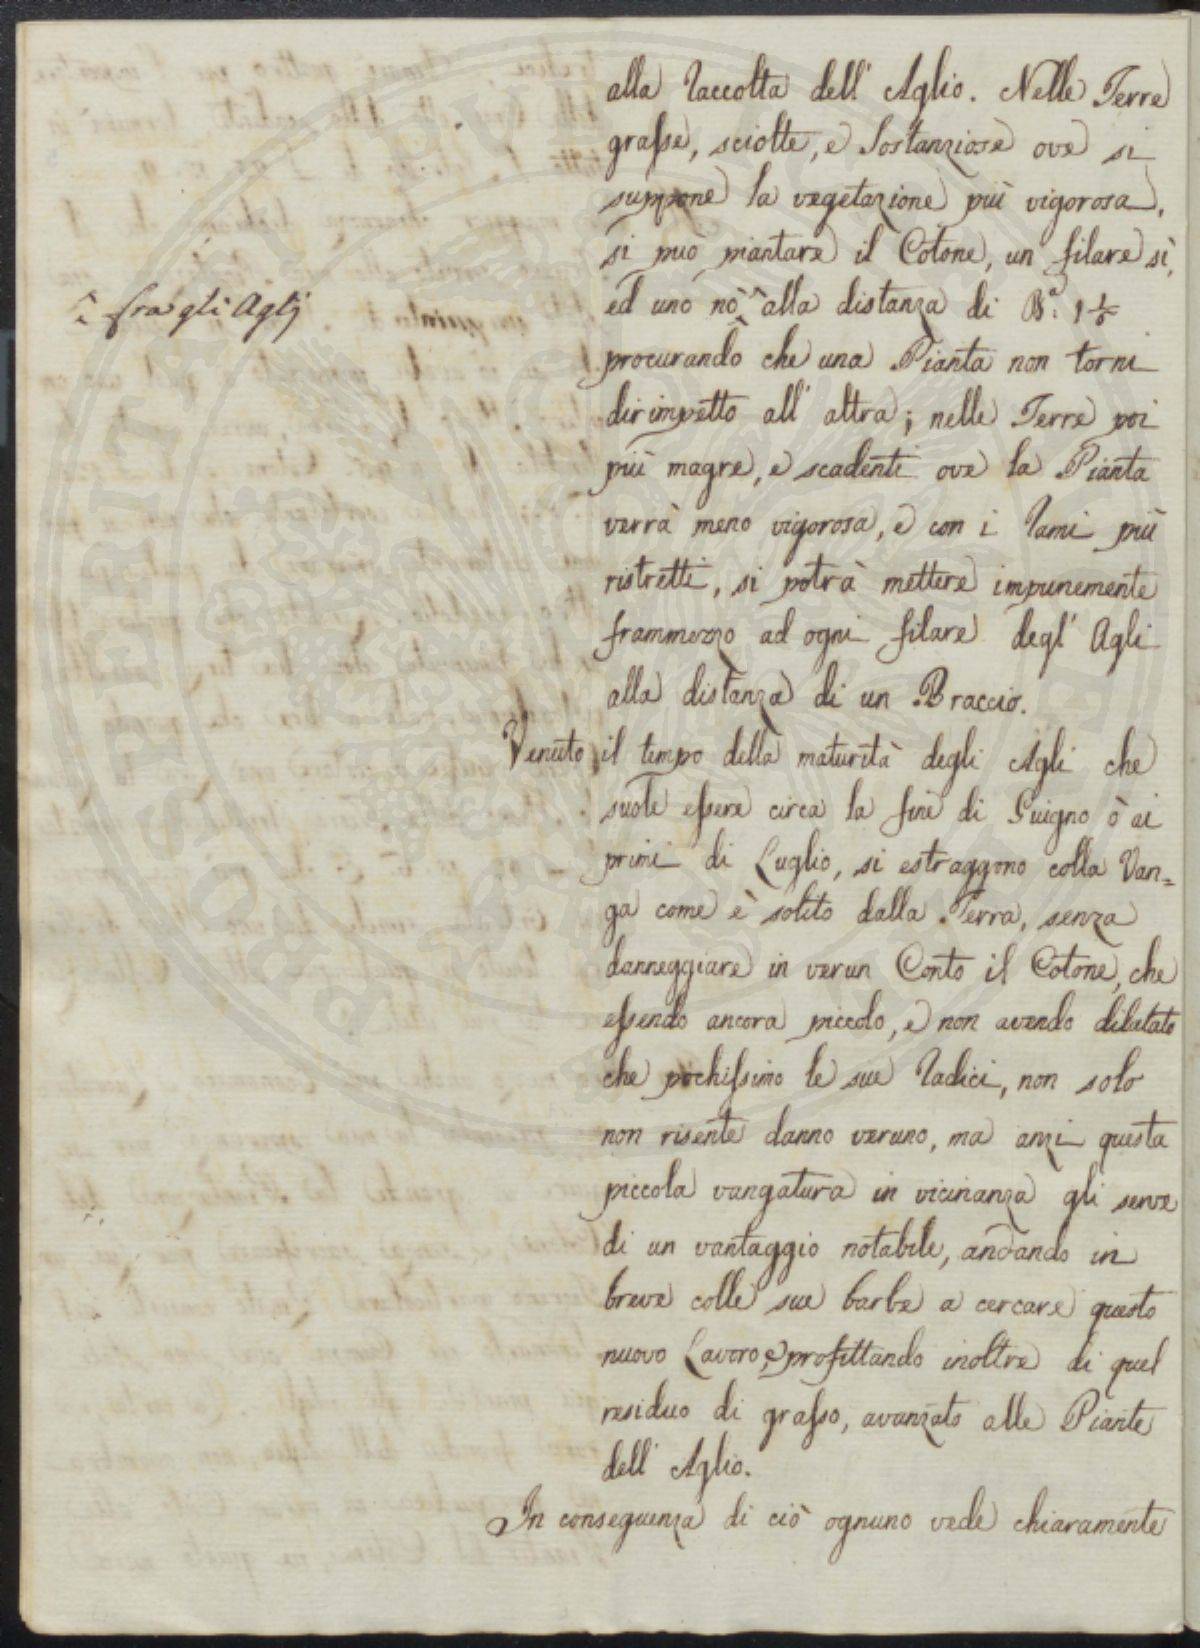 alla Raccolta dell' Aglio. Nelle Terre
grasse, sciolte, e Sostanziose ove si
suppone la vegetazione più vigorosa,
si può piantare il Cotone, un filare sì,
ed uno nò ^ alla distanza di B.ª 1 1/6
^ fra gli Aglj
procurando che una Pianta non torni
dirimpetto all' altra; nelle Terre poi
più magre, e scadenti ove la Pianta
verrà meno vigorosa, e con i Rami più
ristretti, si potrà mettere impunemente
frammezzo ad ogni filare degl' Agli
alla distanza di un Braccio.
Venuto il tempo della maturità degli Agli che
suole essere circa la fine di Guigno ò ai
primi di Luglio, si estraggono colla Van=
ga come è solito dalla Terra, senza
danneggiare in verun Conto il Cotone, che
essendo ancora piccolo, e non avendo dilatato
che pochissimo le sue Radici, non solo
non risente danno veruno, ma anzi questa
piccola vangatura in vicinanza gli serve
di un vantaggio notabile, andando in
breve colle sue barbe a cercare questo
nuovo Lavoro, e profittando inoltre di quel
residuo di grasso, avanzato alle Piante
dell' Aglio.
In conseguenza di ciò ognuno vede chiaramente